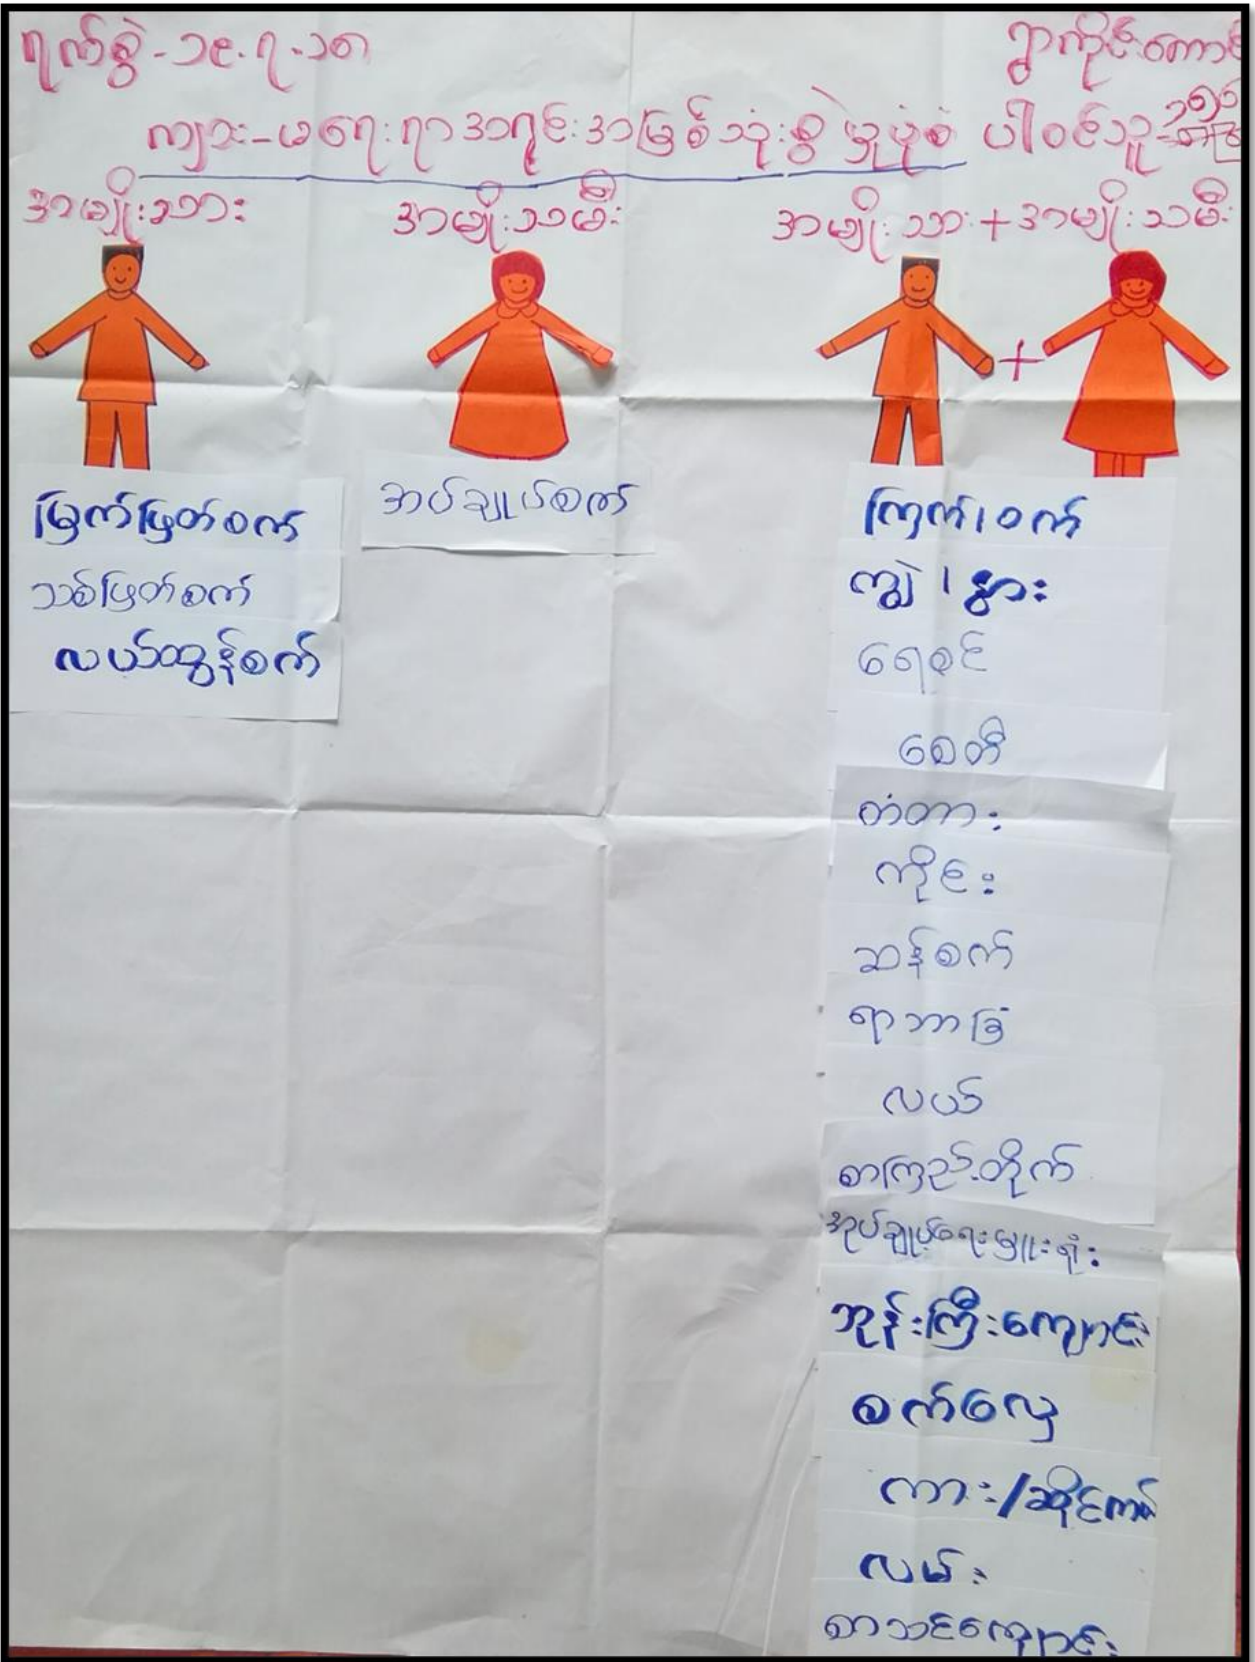 ရက်စွဲ-၁၉.၇.၁၈
ကျား-မရေးရာအရင်းအမြစ်သုံးစွဲမှုပုံစံ ပါဝင်သူ-
အမျိုးသား အမျိုးသမီး အမျိုးသား+အမျိုးသမီး
+
မြက်ဖြတ်စက်
သစ်ဖြတ်စက်
လယ်ထွန်စက်
အပ်ချုပ်စက်
ကြက်၊ဝက်
ကျွဲ၊နွား
ရေစင်
စေတီ
တံတား
ကိုင်း
ဆန်စက်
ရာဘာခြံ
လယ်
စာကြည့်တိုက်
အုပ်ချုပ်ရေးမှူးရုံး
ဘုန်းကြီးကျောင်း
စက်လှေ
ကား/ဆိုင်ကယ်
လမ်း
စာသင်ကျောင်း